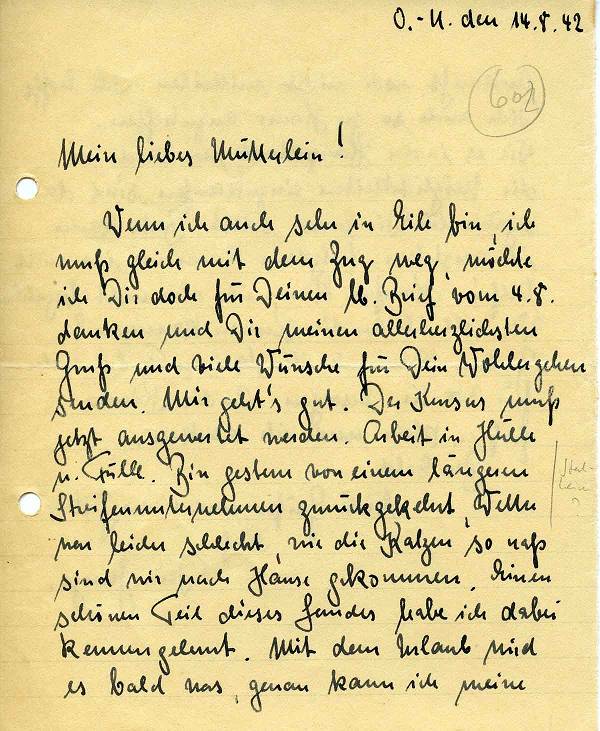 O.-U. den 14.8.42
602
Mein liebes Mütterlein!
Wenn ich auch sehr in Eile bin, ich
muß gleich mit dem Zug weg, möchte
ich Dir doch für Deinen lb. Brief vom 4.8.
danken und Dir meinen allerherzlichsten
Gruß und viele Wünsche für Dein Wohlergehen
senden. Mir geht's gut. Der Kursus muß
jetzt ausgewertet werden. Arbeit in Hülle
u. Fülle. Bin gestern von einem längeren
Streifenunternehmen zurückgekehrt, Wetter
war leider schlecht, wie die Katzen so naß
sind wir nach Hause gekommen. Einen
schönen Teil dieses Landes habe ich dabei
kennengelernt. Mit dem Urlaub wird
es bald was, genau kann ich meine